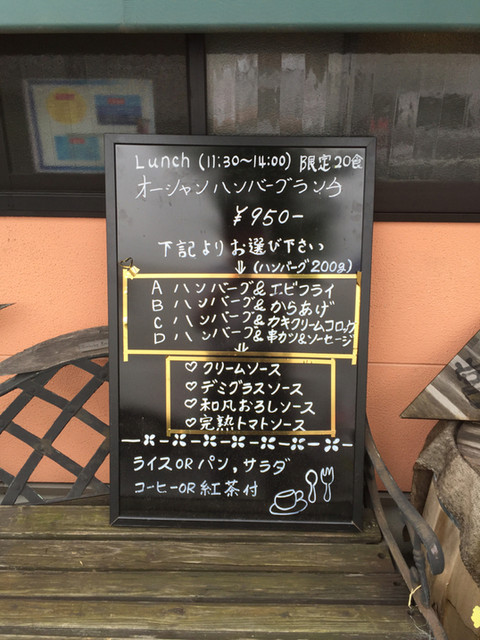 Lunch (11:30～14:00) 限定20食
オーシャンハンバーグランチ
¥950-
下記よりお選び下さい
⇓(ハンバーグ200g)
A ハンバーグ&エビフライ
B ハンバーグ&からあげ
C ハンバーグ&カキクリームコロッケ
D ハンバーグ&串カツ&ソーセージ
⇓
♡クリームソース
♡デミグラスソース
♡和風おろしソース
♡完熟トマトソース
ライスORパン,サラダ
コーヒーOR紅茶付